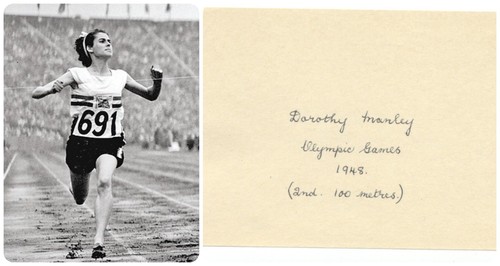 691
Dorothy Manley
Olympic Games
1948.
(2nd. 100 metres.)